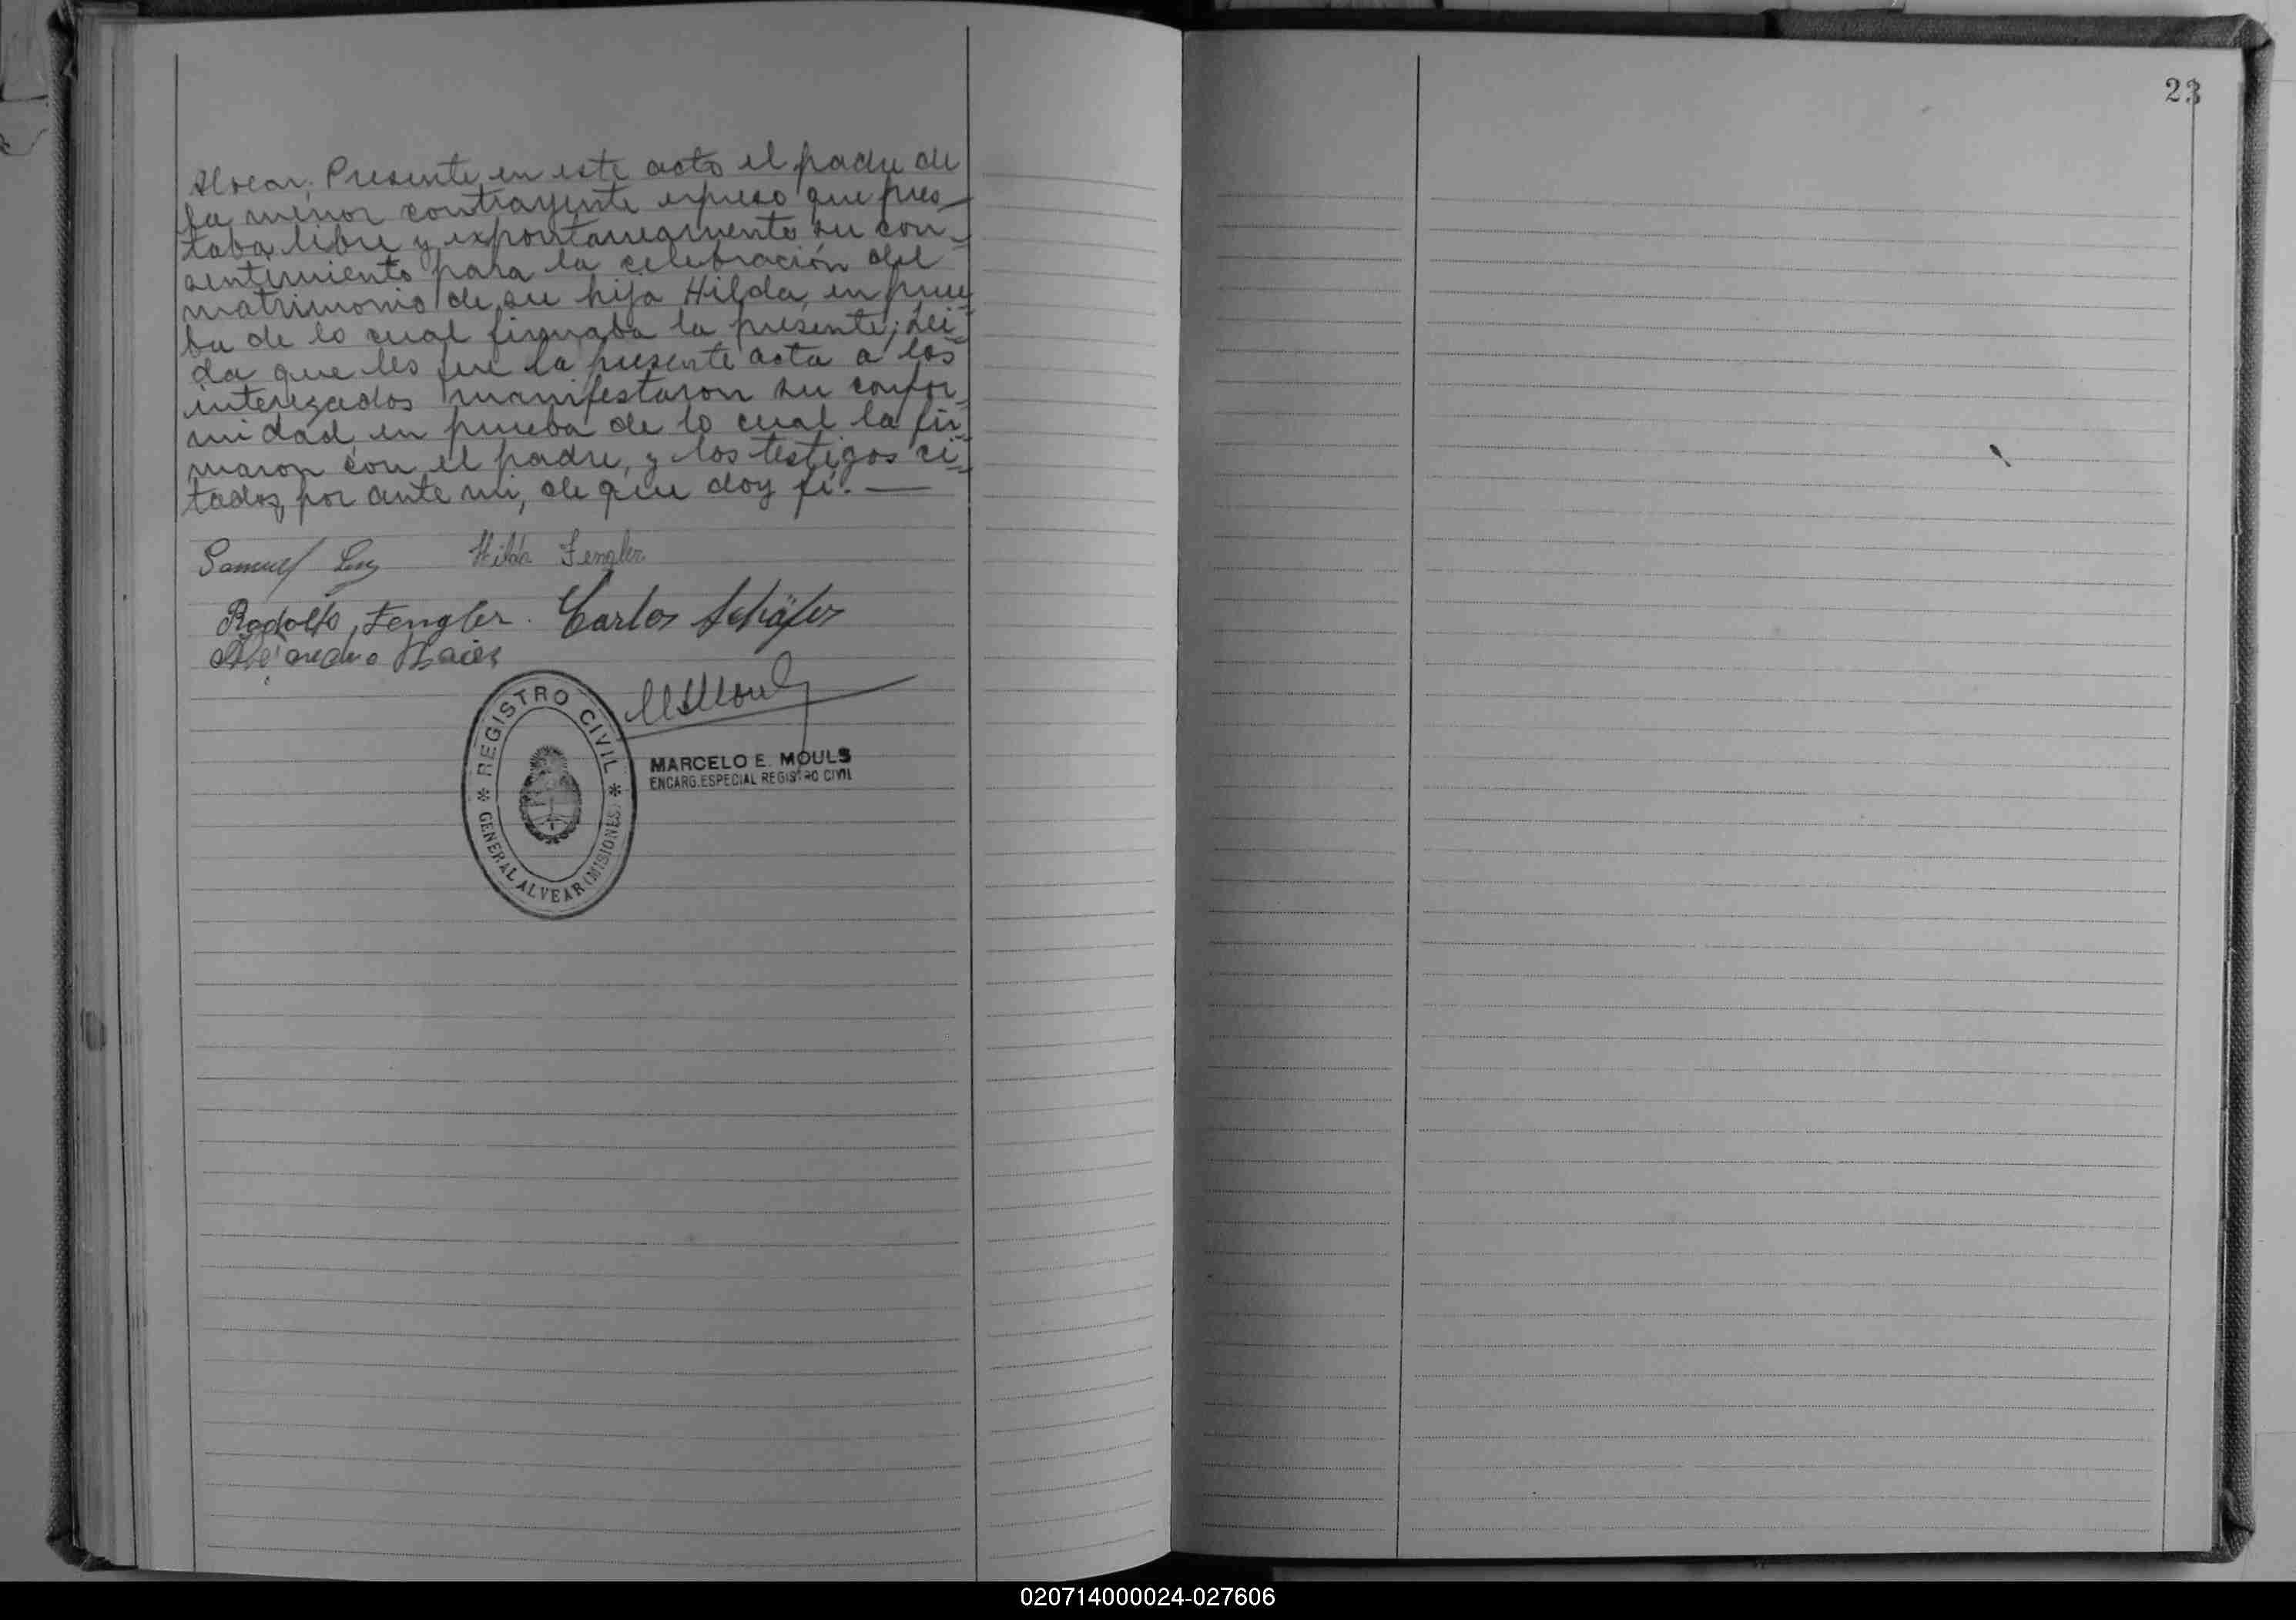 23
Alvear. Presente en este acto el padre de
la menor contrayente expreso que pres-
taba libre y expontaneamente su con-
sentimiento para la celebración del
matrimonio de su hija Hilda, en prue-
ba de lo cual firmaba la presente; Lei-
da que les fue la presente acta a los
interezados manifestaron su confor-
midad, en prueba de lo cual la fir-
maron con el padre, y los testigos ci-
tados, por ante mi, de que doy fé. —
Samuel Hilda Fengler
Rodolfo Fengler. Carlos Schäfer
REGISTRO CIVIL
GENERAL ALVEAR (MISIONES)
MARCELO E. MOULS
ENCARG. ESPECIAL REGISTRO CIVIL
020714000024-027606